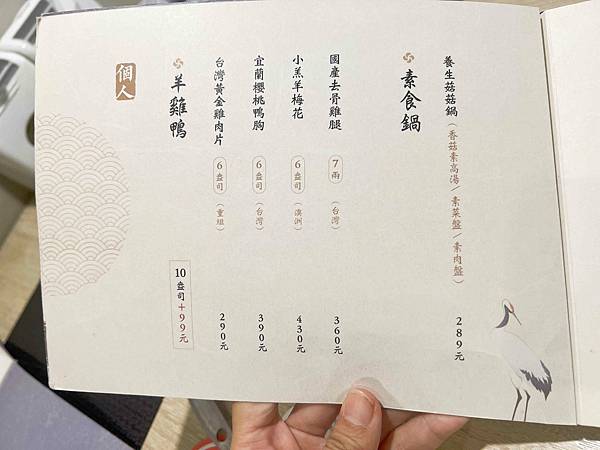 卍 素食鍋
養生菇菇鍋（香菇素高湯／素菜盤／素肉盤） 289元
個人
卍 羊雞鴨 10盎司+99元
台灣黃金雞肉片 6盎司（重組） 290元
宜蘭櫻桃鴨胸 6盎司（台灣） 390元
小羔羊梅花 6盎司（澳洲） 430元
國產去骨雞腿 7兩（台灣） 360元